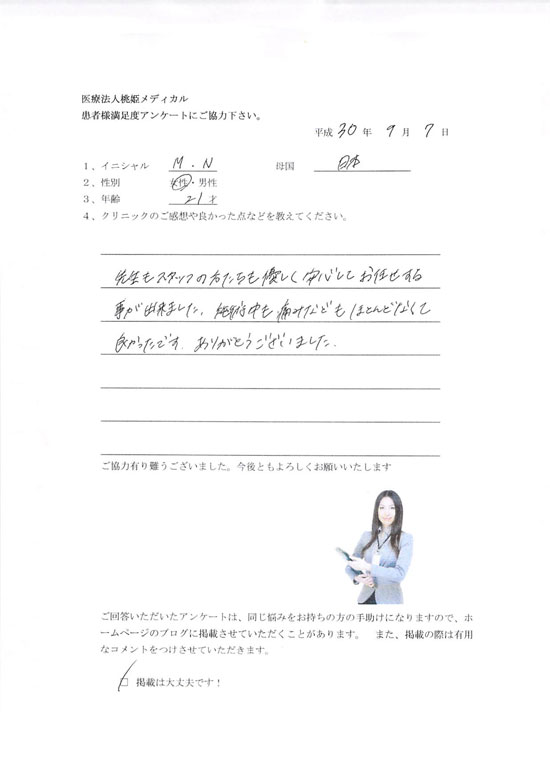 医療法人桃姫メディカル
患者様満足度アンケートにご協力下さい。
平成 30 年 9 月 7 日
1、イニシャル M・N 母国 日本
2、性別 女性・男性
3、年齢 21才
4、クリニックのご感想や良かった点などを教えてください。
先生もスタッフの方たちも優しく安心してお任せする
事が出来ました。施術中も痛みなどもほとんどなくて
良かったです。ありがとうございました。
ご協力有り難うございました。今後ともよろしくお願いいたします
ご回答いただいたアンケートは、同じ悩みをお持ちの方の手助けになりますので、ホ
ームページのブログに掲載させていただくことがあります。 また、掲載の際は有用
なコメントをつけさせていただきます。
□ 掲載は大丈夫です！